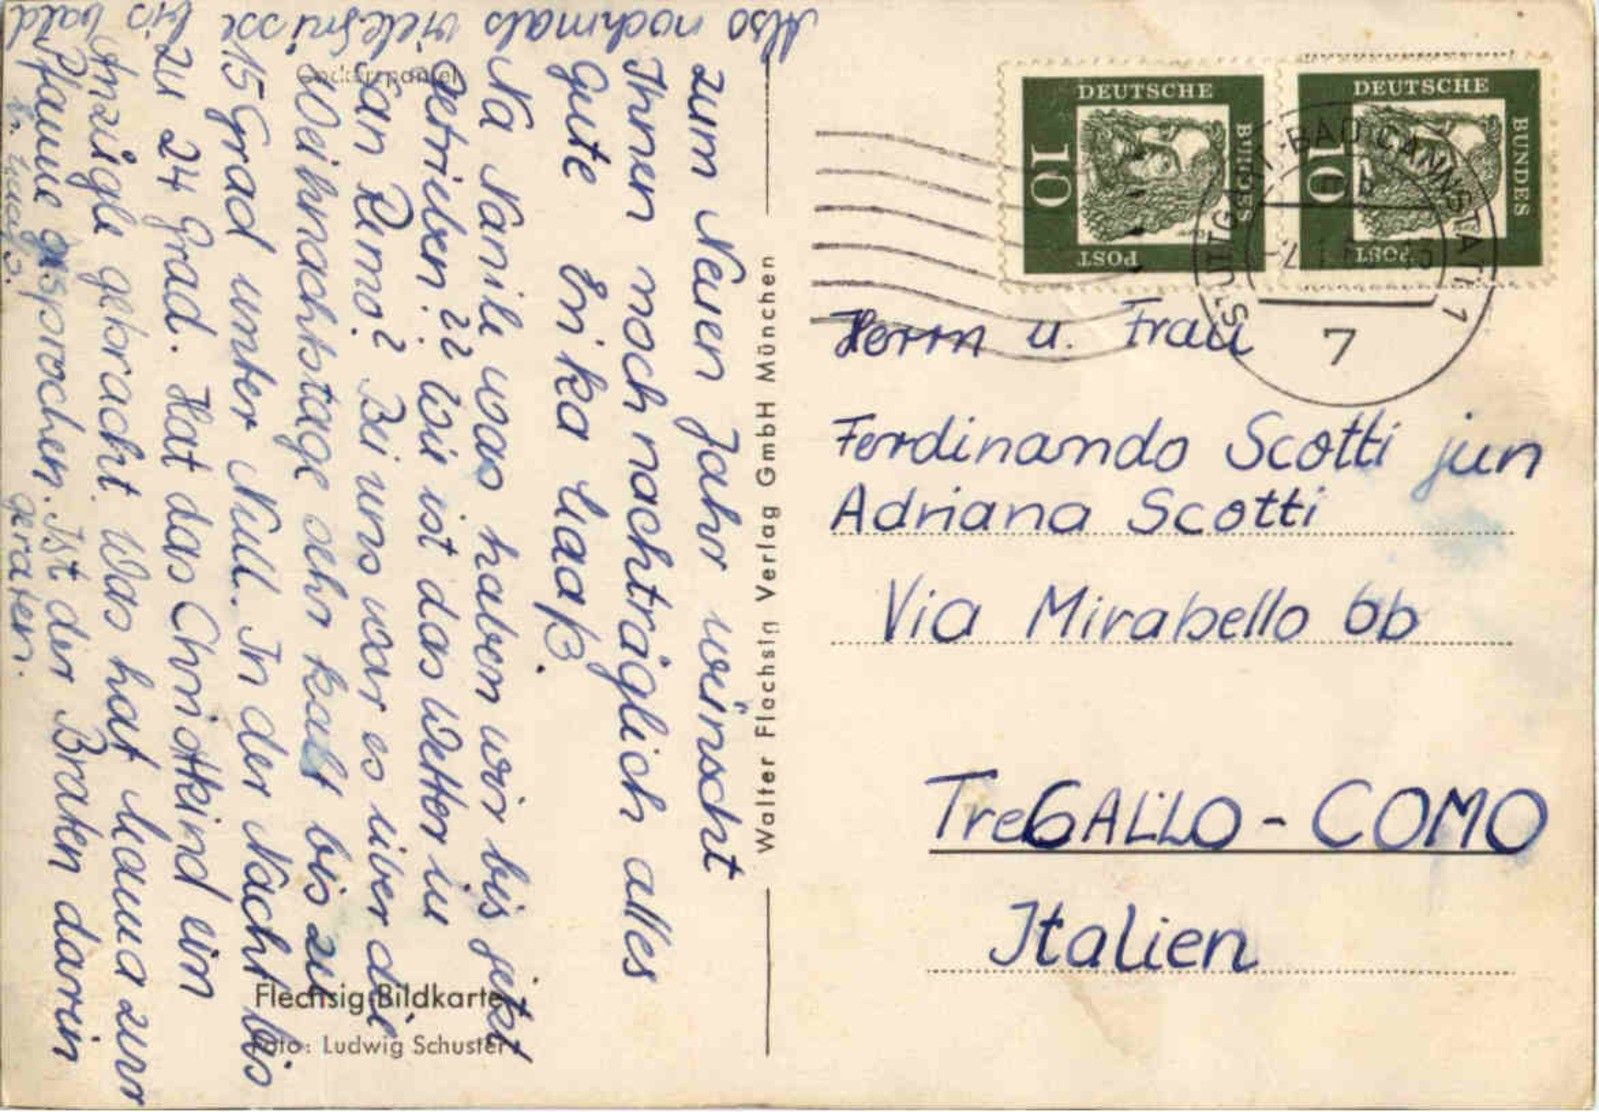 zum Neuen Jahr wünscht
Ihnen noch nachträglich alles
Gute Erika Haaß.
Na Namile was haben wir bis jetzt
getrieben?? Wie ist das Wetter in
San Remo? Bei uns war es über die
Weihnachtstage sehr kalt bis zu
15 Grad unter Null. In der Nacht bis
zu 24 Grad. Hat das Christkind ein
Anzügle gebracht. Was hat Mama zur
Pfanne gesprochen. Ist der Braten darin
geraten.
Also nochmals viele Grüsse bis bald
Cockerspaniel
Flechsig-Bildkarte
Foto: Ludwig Schuster
Walter Flechsig Verlag GmbH München
DEUTSCHE
BUNDES
POST
10
DEUTSCHE
BUNDES
POST
10
STUTTGART-BAD CANNSTATT 1
7
Herrn u. Frau
Ferdinando Scotti jun
Adriana Scotti
Via Mirabello 6b
TreGALLO - COMO
Italien